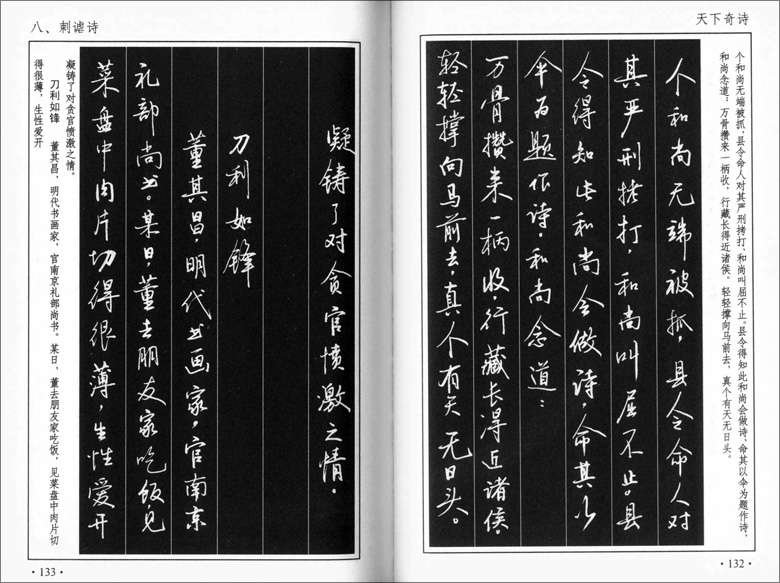 天下奇诗
个和尚无端被抓，县令命人对其严刑拷打，和尚叫屈不止。县令得知此和尚会做诗，命其以伞为题作诗，
和尚念道：万骨攒来一柄收，行藏长得近诸侯。轻轻撑向马前去，真个有天无日头。
个和尚无端被抓，县令命人对
其严刑拷打，和尚叫屈不止。县
令得知此和尚会做诗，命其以
伞为题作诗，和尚念道：
万骨攒来一柄收，行藏长得近诸侯。
轻轻撑向马前去，真个有天无日头。
·132·
八、刺谑诗
凝铸了对贪官愤激之情。
刀利如锋
董其昌，明代书画家，官南京
礼部尚书。某日，董去朋友家吃饭，见
菜盘中肉片切得很薄，生性爱开
凝铸了对贪官愤激之情。
刀利如锋 董其昌，明代书画家，官南京礼部尚书。某日，董去朋友家吃饭，见菜盘中肉片切
得很薄，生性爱开
·133·